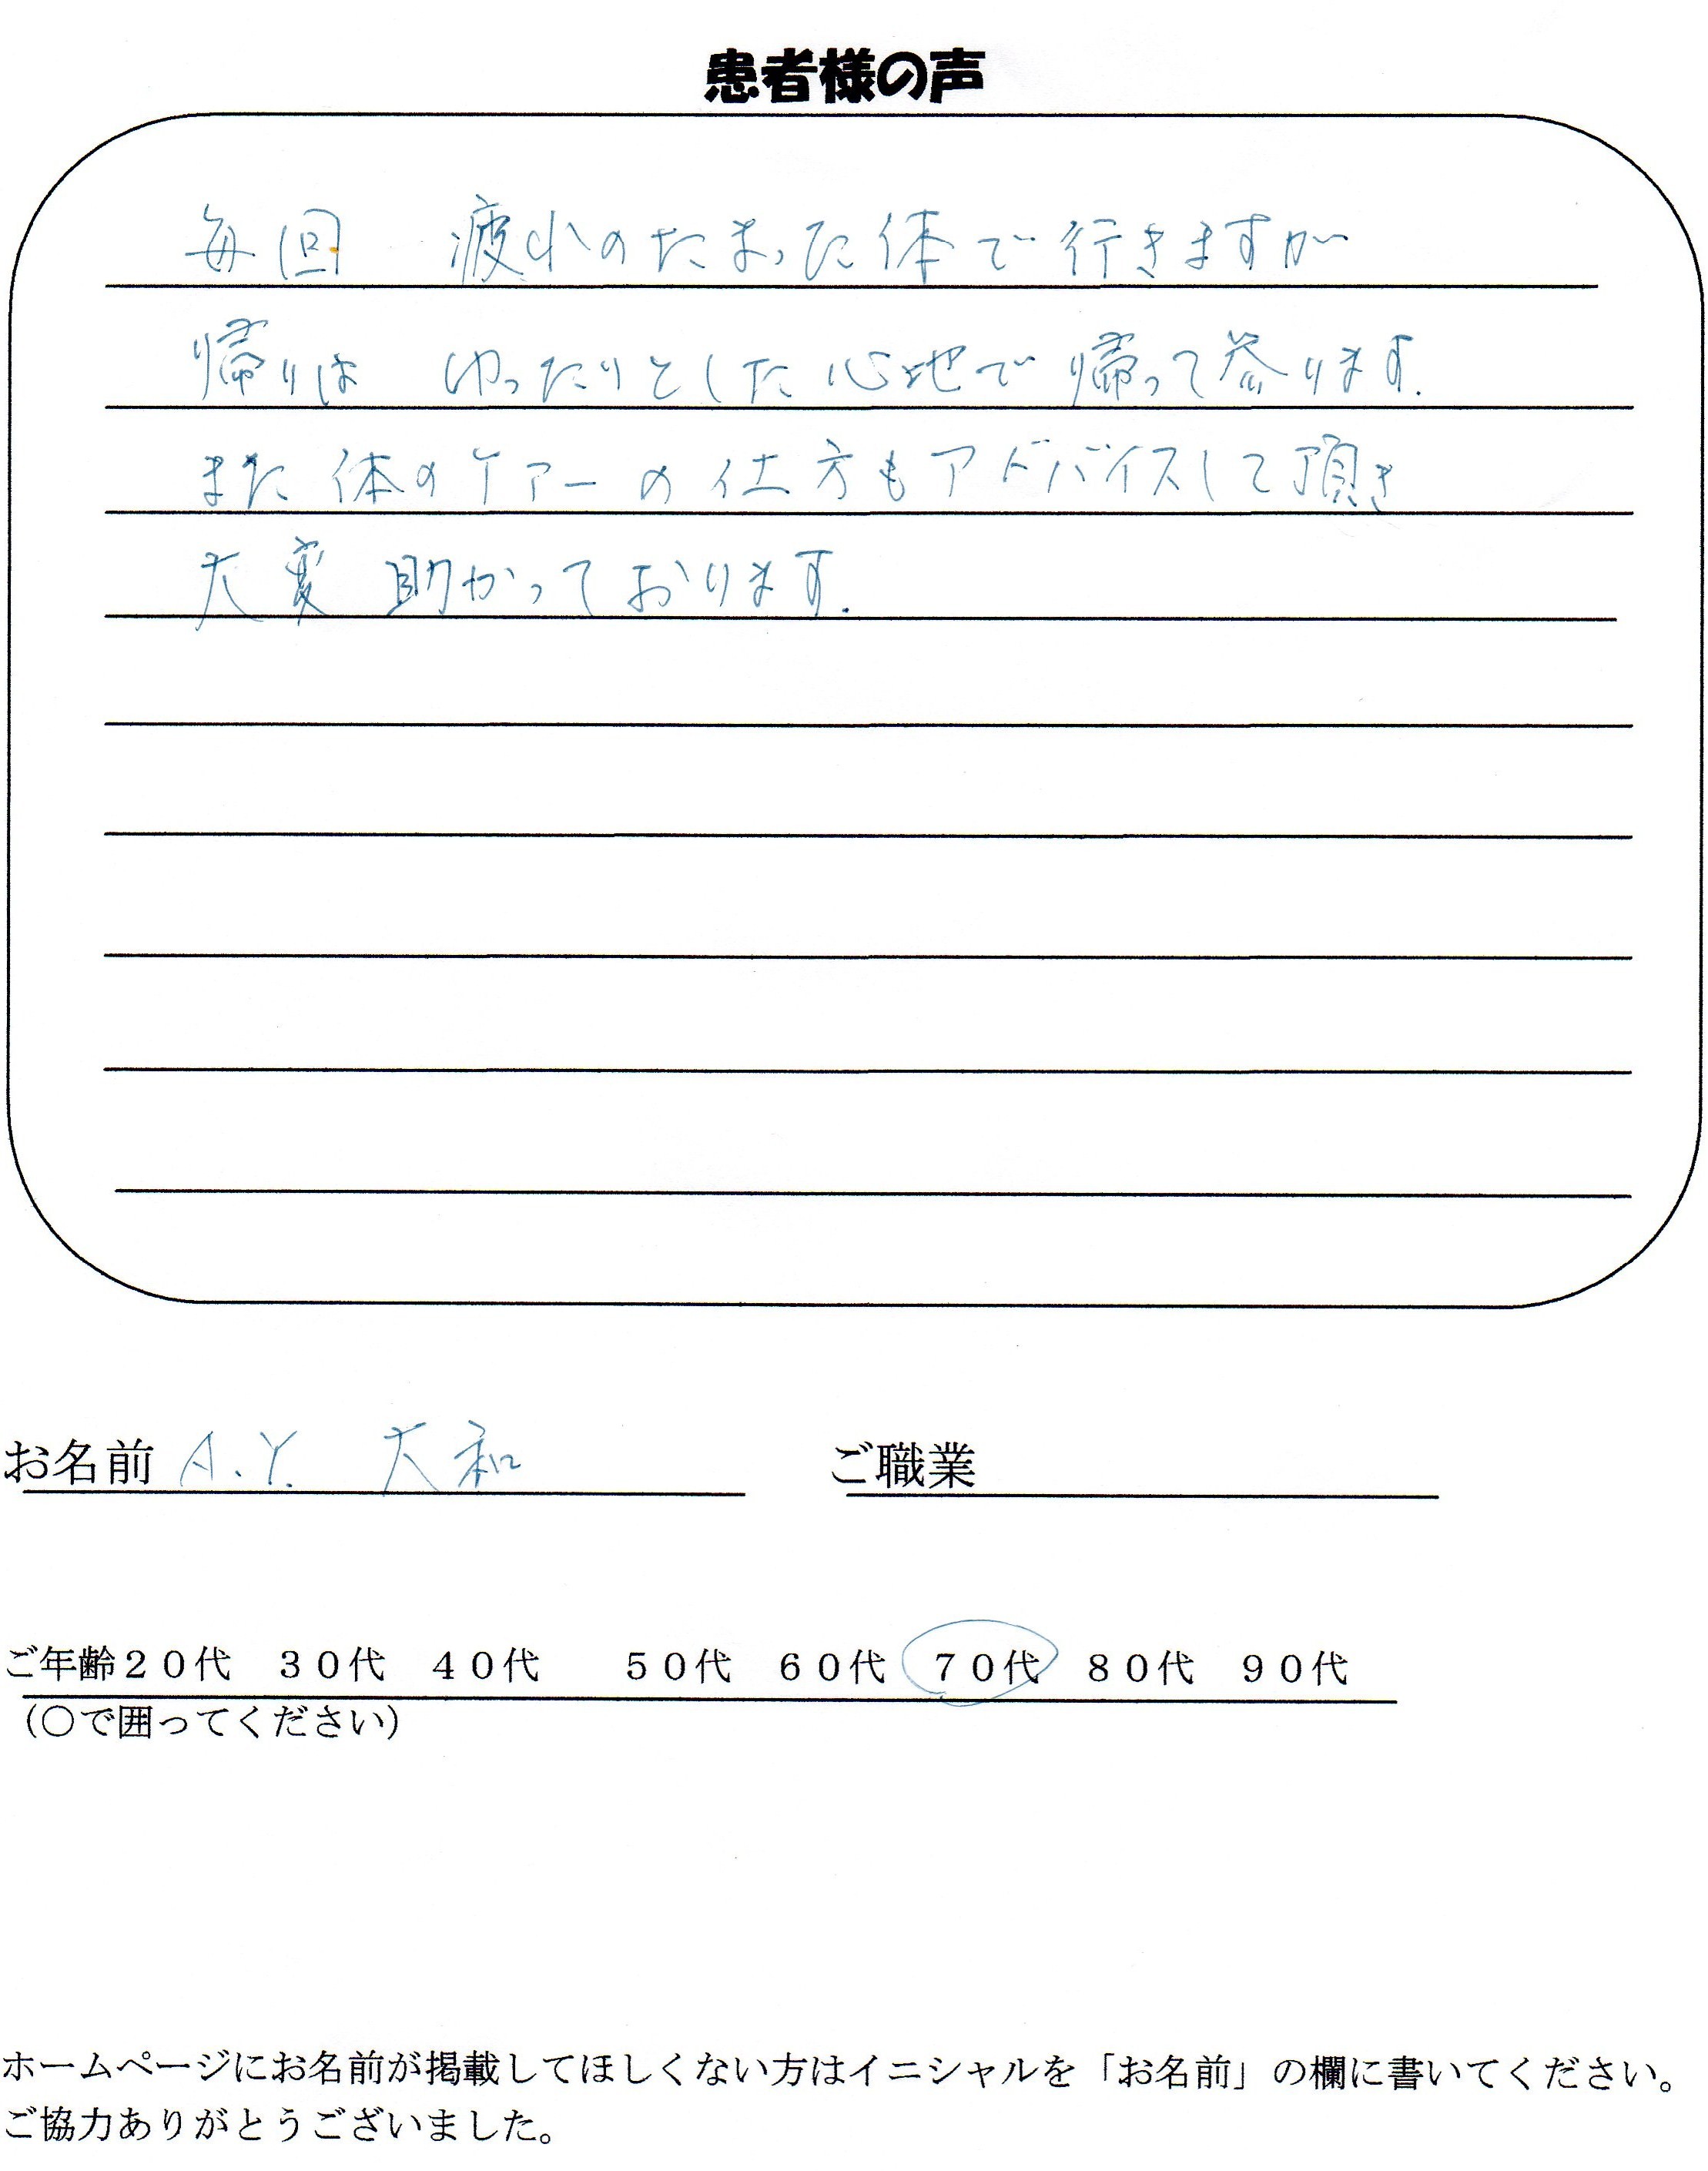 患者様の声
毎回 疲れのたまった体で行きますが
帰りは ゆったりとした心地で帰って参ります.
また体のケアーの仕方もアドバイスして頂き
大変助かっております.
お名前 A.Y. 大和 ご職業
ご年齢20代 30代 40代 50代 60代 70代 80代 90代
（○で囲ってください）
ホームページにお名前が掲載してほしくない方はイニシャルを「お名前」の欄に書いてください。
ご協力ありがとうございました。